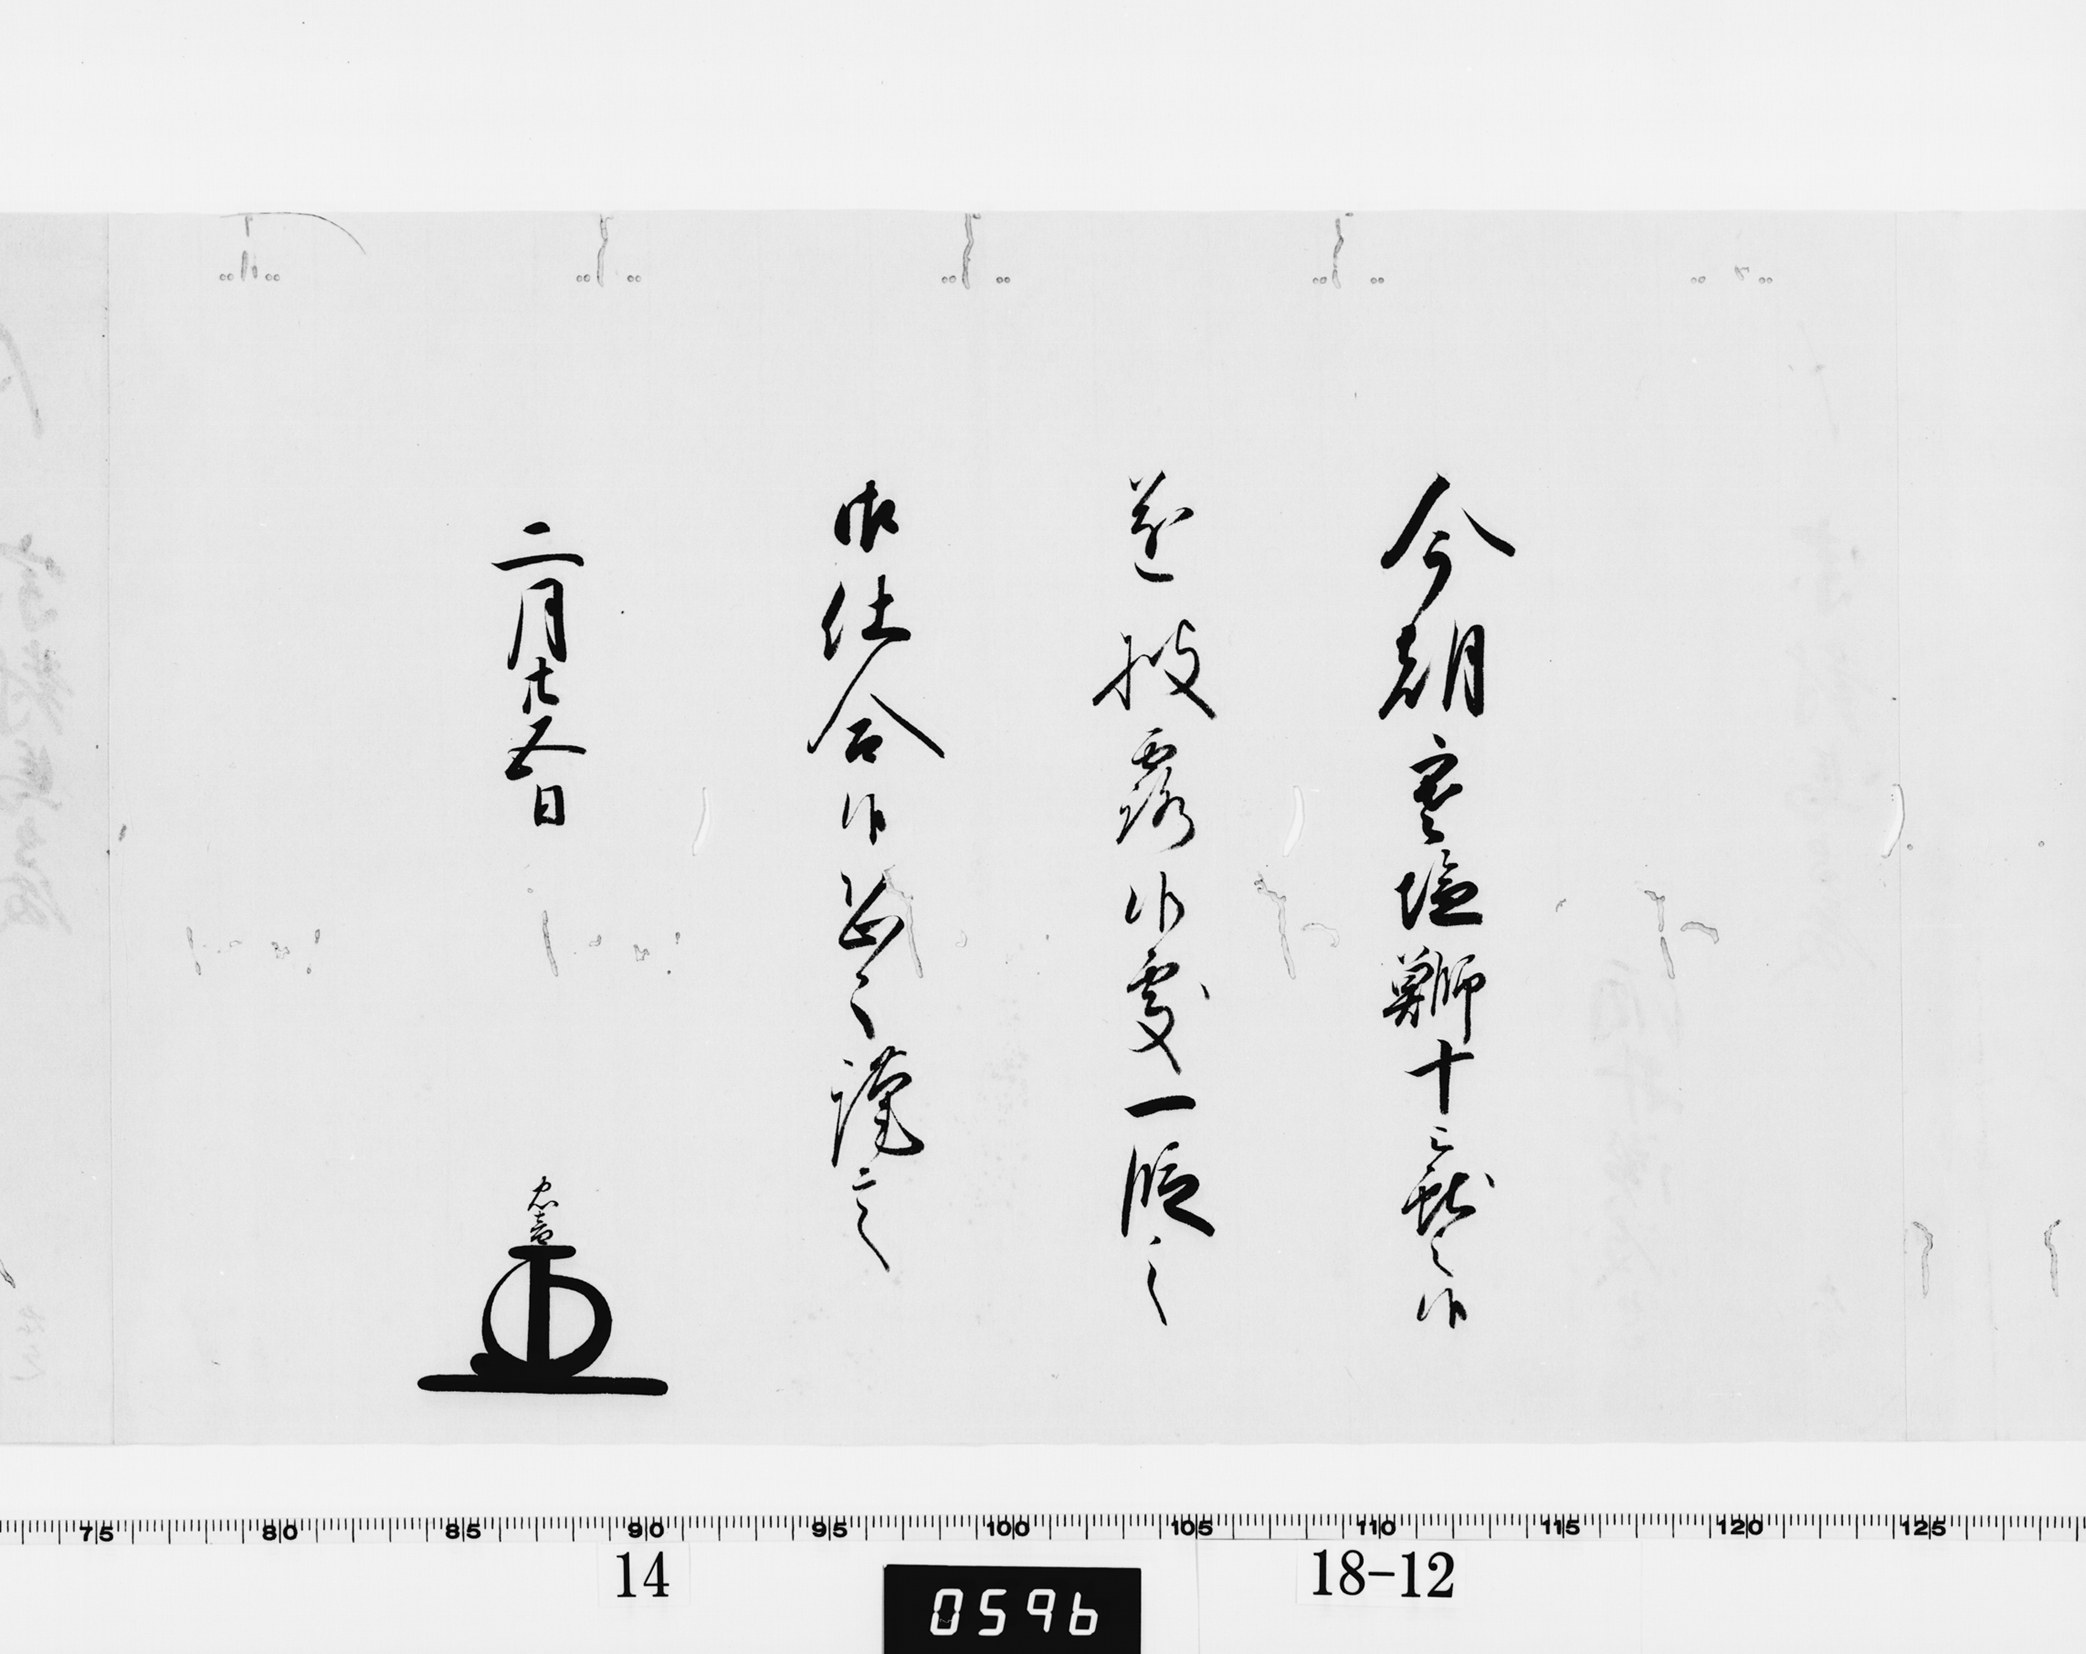 今朝寒塩鰤十二献之候
遂披露候處一段之
御仕合候恐々謹言
二月廿五日
忠音
75 80 85 90 95 100 105 110 115 120 125
14
0596
18-12